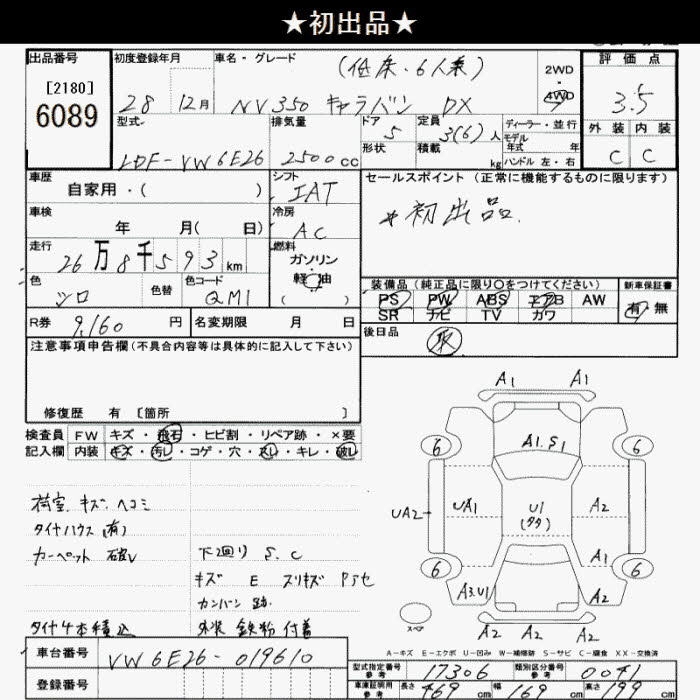 ★初出品★
出品番号
[2180]
6089
初度登録年月
28 12月
車名・グレード
(低床・6人乗)
NV350 キャラバン DX
2WD
4WD
評価点
3.5
外装 内装
C C
型式
LDF-VW6E26
排気量
2500cc
ドア
5
形状
定員
3(6)人
積載
kg
ディーラー・並行
モデル
年式 年
ハンドル 左・右
車歴
自家用・( )
シフト
IAT
セールスポイント (正常に機能するものに限ります)
★初出品.
車検
年 月( 日)
冷房
AC
走行
26万8千593km
燃料
ガソリン
軽油
( )
色
シロ
色替
色コード
QM1
装備品 (純正品に限り○をつけてください)
PS PW ABS エアB AW
SR ナビ TV カワ
新車保証書
有 無
R券
9,160 円
名変期限 月 日
後日品
取
注意事項申告欄 (不具合内容等は具体的に記入して下さい)
修復歴 有 [箇所 ]
検査員
記入欄
FW キズ・飛石・ヒビ割・リペア跡・×要
内装 キズ・汚し・コゲ・穴・スレ・キレ・破レ
荷室 キズ ヘコミ
タイヤハウス (有)
カーペット 破レ
下廻り S.C
キズ E スリキズ
カンバン 跡.
タイヤ4本積込
外装 鉄粉 付着
A1 A1
6 6
A1.S1
UA2→ UA1 U1 A2
(タタ)
A1
6 6
A3.U1 A2
スペア
A2 A2 A2
A-キズ E-エクボ U-凹み W-補修跡 S-サビ C-腐食 XX-交換済
車台番号
VW6E26-019610
登録番号
型式指定番号
参考
17306
類別区分番号
参考
0041
車庫証明用
参考
長さ 469 cm 幅 169 cm 高さ 199 cm